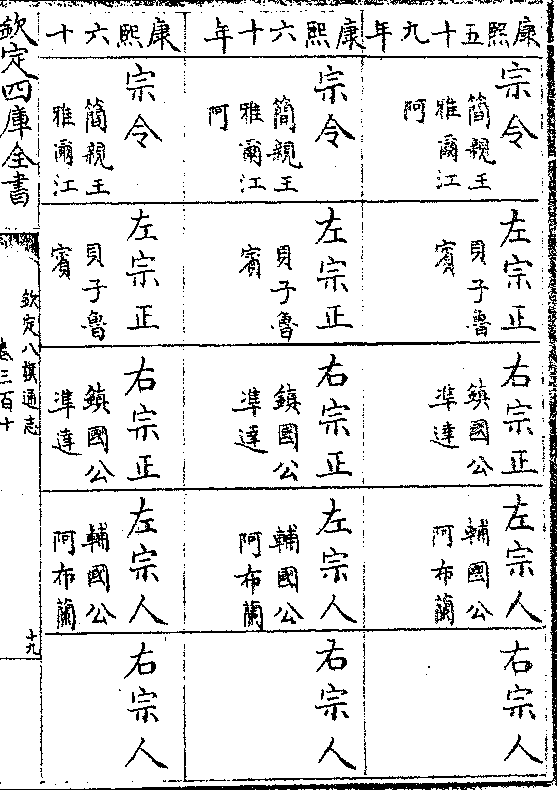 康熙五十九年
宗令
簡親王
雅爾江
阿
左宗正
貝子魯
賓
右宗正
鎮國公
準達
左宗人
輔國公
阿布蘭
右宗人
康熙六十年
宗令
簡親王
雅爾江
阿
左宗正
貝子魯
賓
右宗正
鎮國公
準達
左宗人
輔國公
阿布蘭
右宗人
康熙六十
宗令
簡親王
雅爾江
左宗正
貝子魯
賓
右宗正
鎮國公
準達
左宗人
輔國公
阿布蘭
右宗人
欽定四庫全書
欽定八旗通志
卷三百十
十九